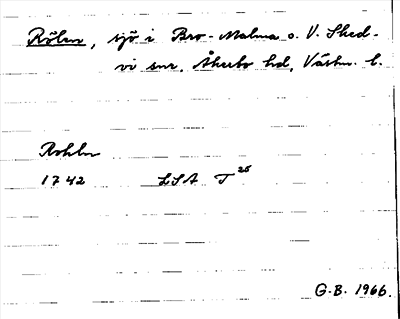 Rölen, sjö i Bro-Malma o. V. Sked-
vi snr, Åkerbo hd, Västm. l.
Rohln
1742 LSA T 26
G.B. 1966.